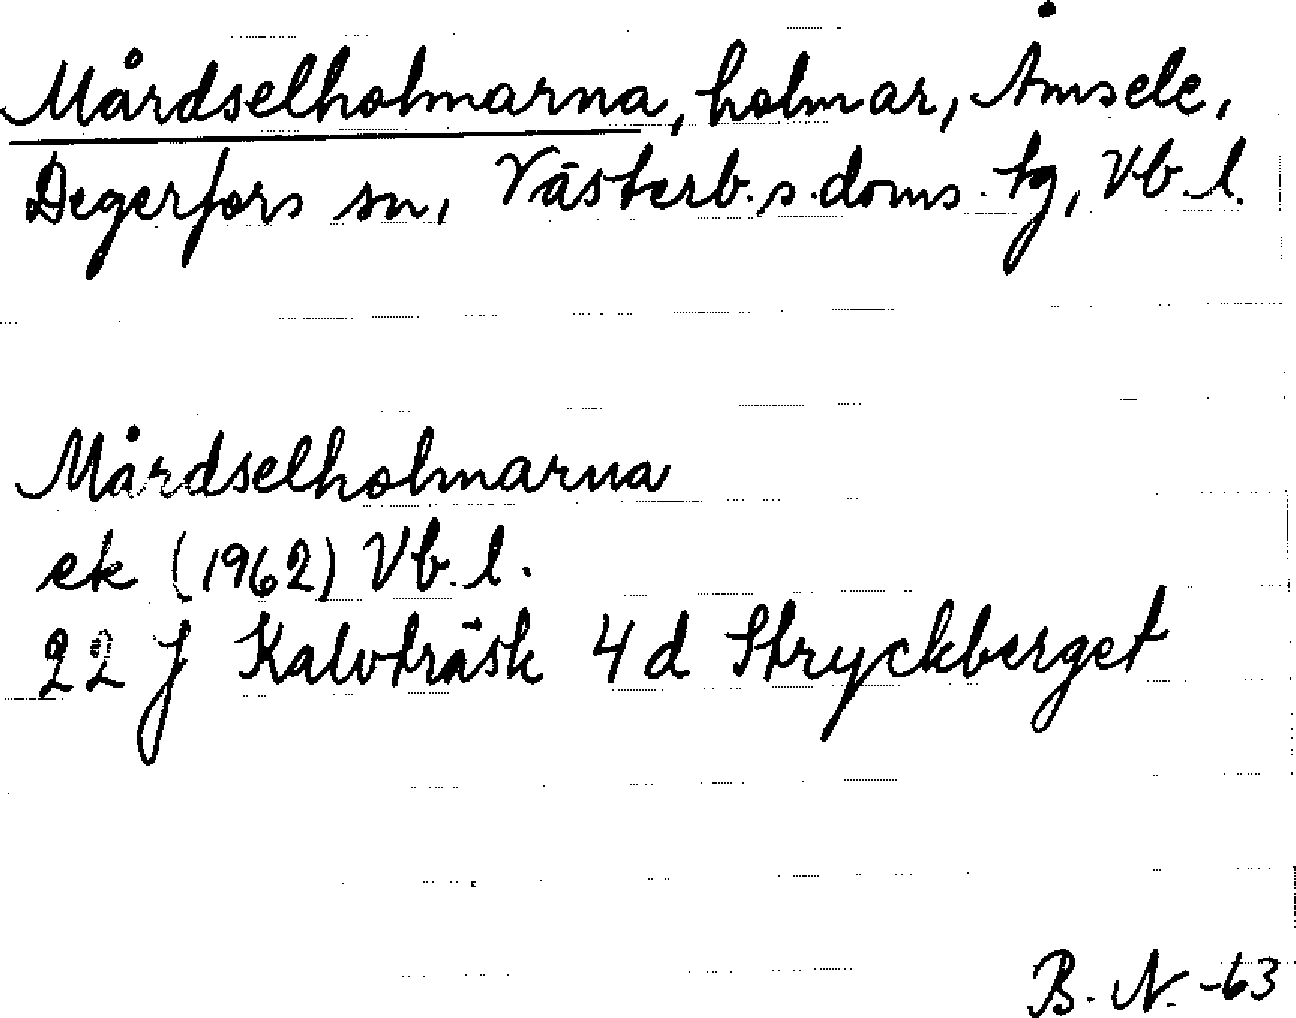 Mårdselholmarna, holmar, Åmsele,
Degerfors sn, Västerb. s. doms. tg, Vb. l.
Mårdselholmarna
ek (1962) Vb. l.
22 J Kalvträsk 4 d Stryckberget
B. N. -63